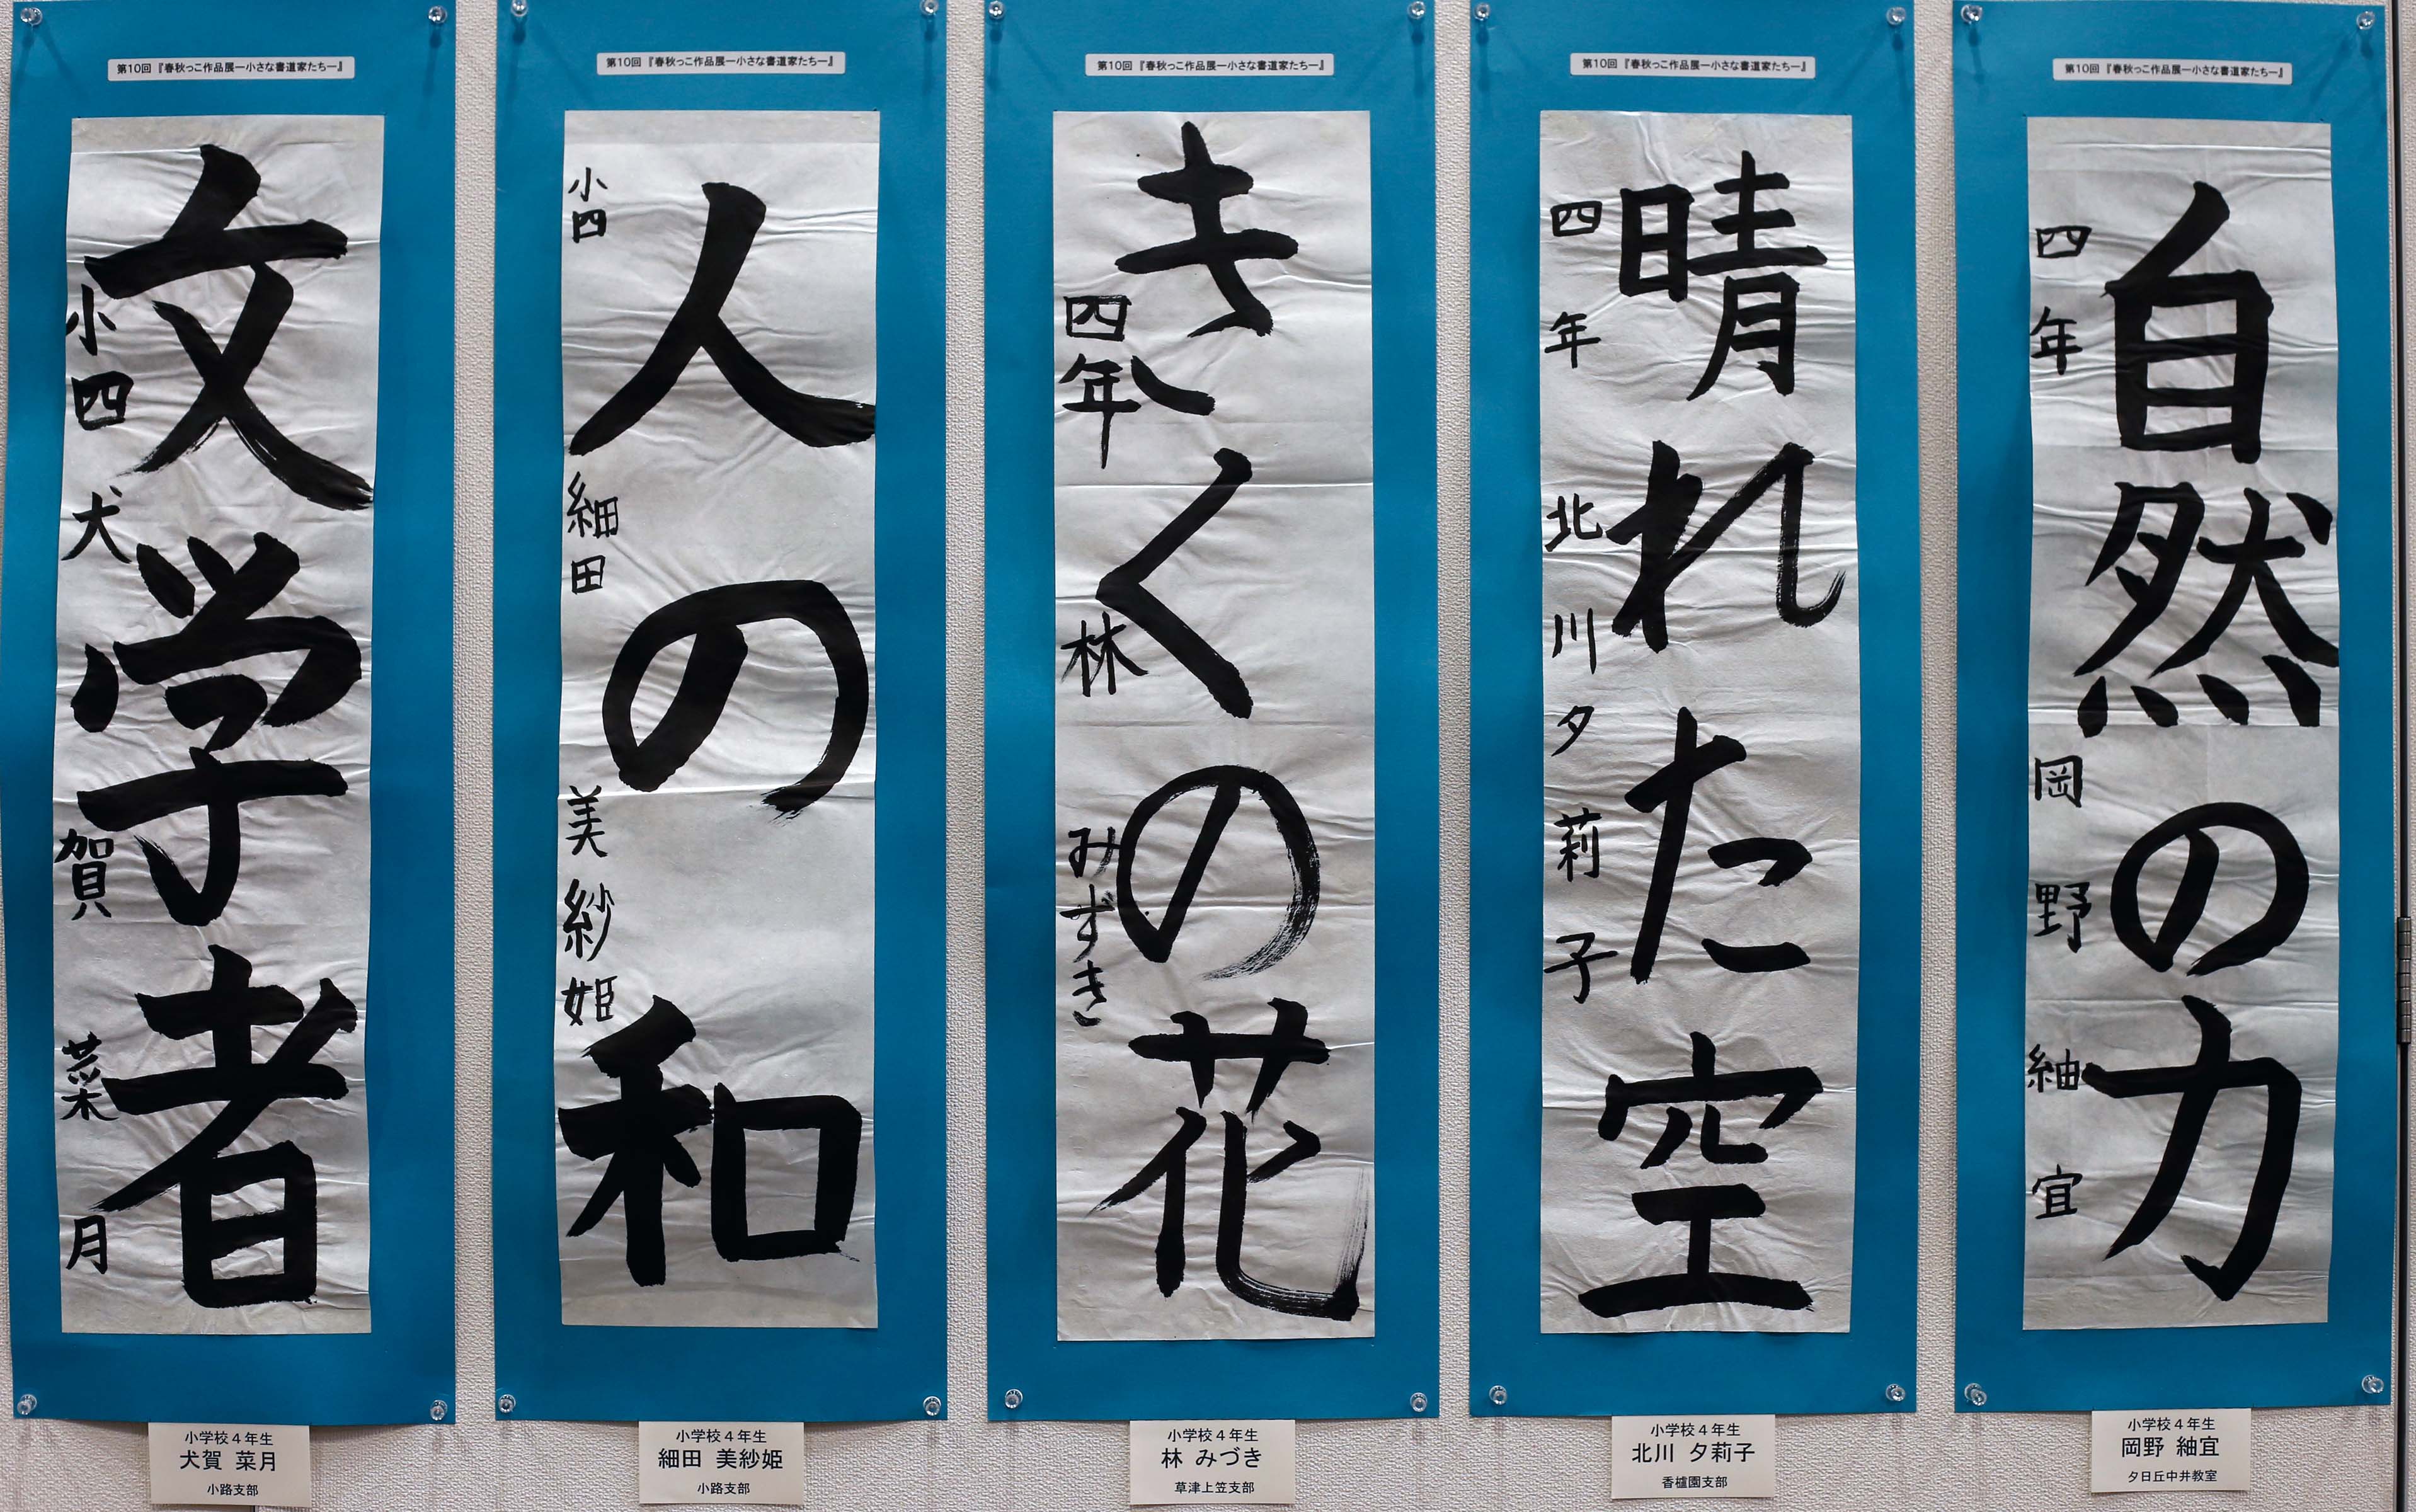 第10回『春秋っこ作品展ー小さな書道家たちー』
文学者
小四 犬賀菜月
小学校4年生
犬賀 菜月
小路支部
第10回『春秋っこ作品展ー小さな書道家たちー』
人の和
小四 細田美紗姫
小学校4年生
細田 美紗姫
小路支部
第10回『春秋っこ作品展ー小さな書道家たちー』
きくの花
四年 林みずき
小学校4年生
林 みづき
草津上笠支部
第10回『春秋っこ作品展ー小さな書道家たちー』
晴れた空
四年 北川夕莉子
小学校4年生
北川 夕莉子
香櫨園支部
第10回『春秋っこ作品展ー小さな書道家たちー』
自然の力
四年 岡野紬宜
小学校4年生
岡野 紬宜
夕日丘中井教室